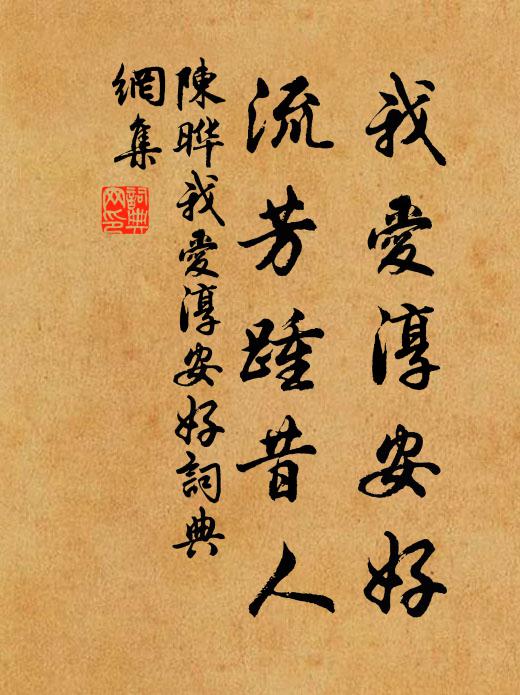 我愛淳安好
流芳踵昔人
陳晔我愛淳安好詞典
網集
詞典
网印